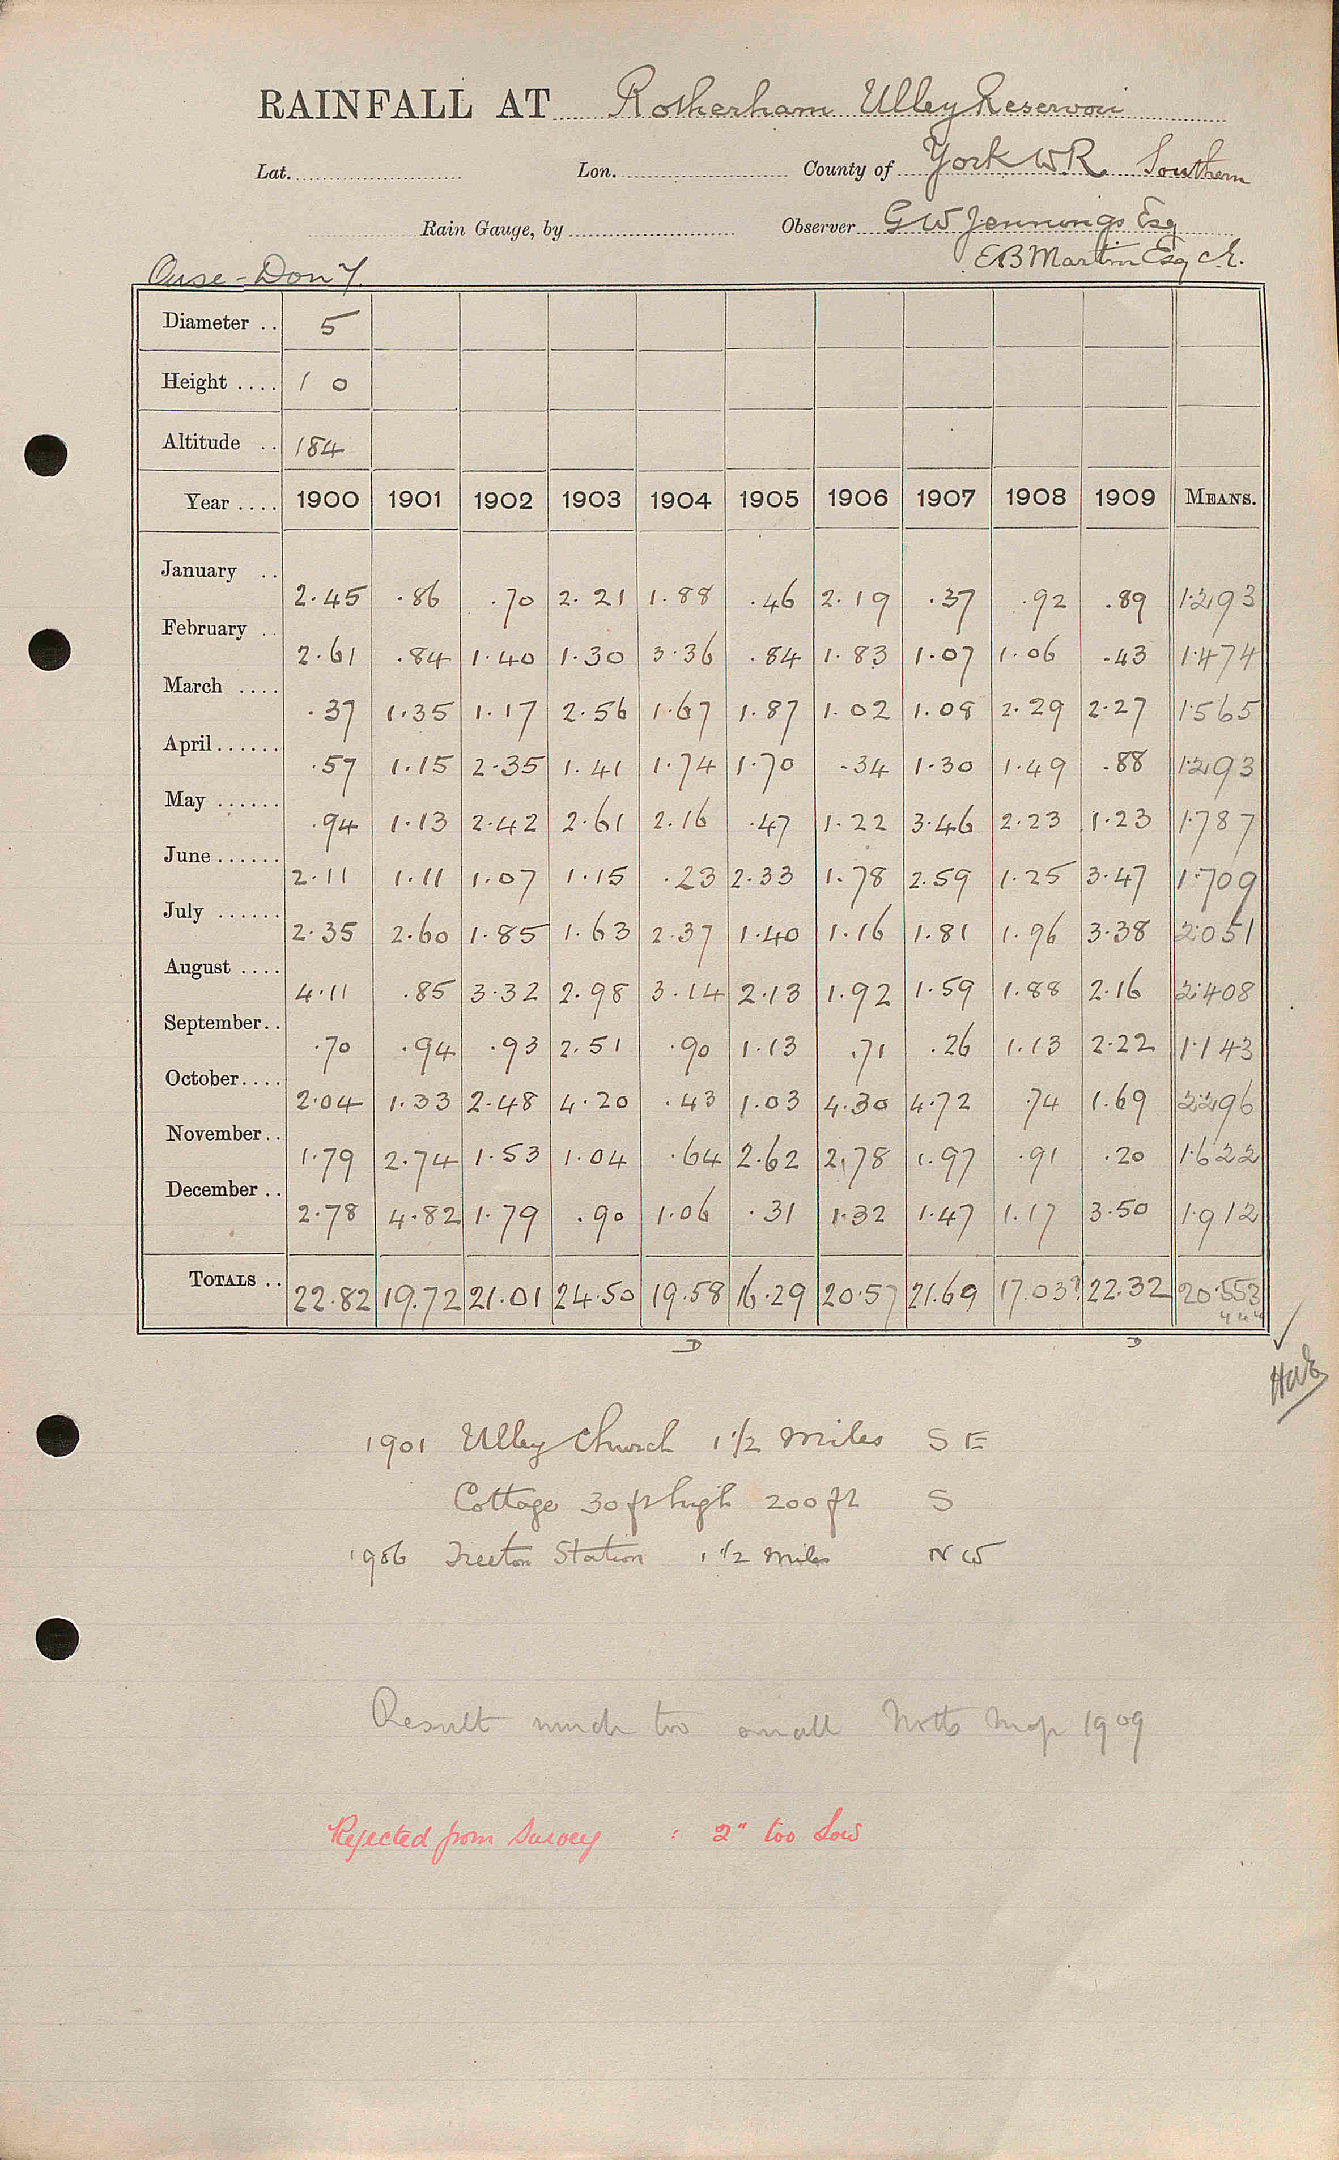 RAINFALL AT Rotherham Ulley Reservoir
Lat. Lon. County of York WR Southern
Rain Gauge, by Observer G W Jennings Esq
E B Martin Esq C.E.
Ouse - Don Y.
Diameter .. 5
Height .... 1 0
Altitude .. 184
Year .... 1900 1901 1902 1903 1904 1905 1906 1907 1908 1909 MEANS.
January .. 2.45 .86 .70 2.21 1.88 .46 2.19 .37 .92 .89 1.293
February .. 2.61 .84 1.40 1.30 3.36 .84 1.83 1.07 1.06 .43 1.474
March .... .37 1.35 1.17 2.56 1.67 1.87 1.02 1.08 2.29 2.27 1.565
April ...... .57 1.15 2.35 1.41 1.74 1.70 .34 1.30 1.49 .88 1.293
May ...... .94 1.13 2.42 2.61 2.16 .47 1.22 3.46 2.23 1.23 1.787
June ...... 2.11 1.11 1.07 1.15 .23 2.33 1.78 2.59 1.25 3.47 1.709
July ...... 2.35 2.60 1.85 1.63 2.37 1.40 1.16 1.81 1.96 3.38 2.051
August .... 4.11 .85 3.32 2.98 3.14 2.13 1.92 1.59 1.88 2.16 2.408
September .. .70 .94 .93 2.51 .90 1.13 .71 .26 1.13 2.22 1.143
October .... 2.04 1.33 2.48 4.20 .43 1.03 4.30 4.72 .74 1.69 2.296
November .. 1.79 2.74 1.53 1.04 .64 2.62 2.78 1.97 .91 .20 1.622
December .. 2.78 4.82 1.79 .90 1.06 .31 1.32 1.47 1.17 3.50 1.912
TOTALS .. 22.82 19.72 21.01 24.50 19.58 16.29 20.57 21.69 17.03? 22.32 20.553
D D
1901 Ulley Church 1 1/2 miles S E
Cottage 30 ft high 200 ft S
1906 Treeton Station 1 1/2 miles N W
Result much too small Notts Map 1909
Rejected from Survey : 2" too low